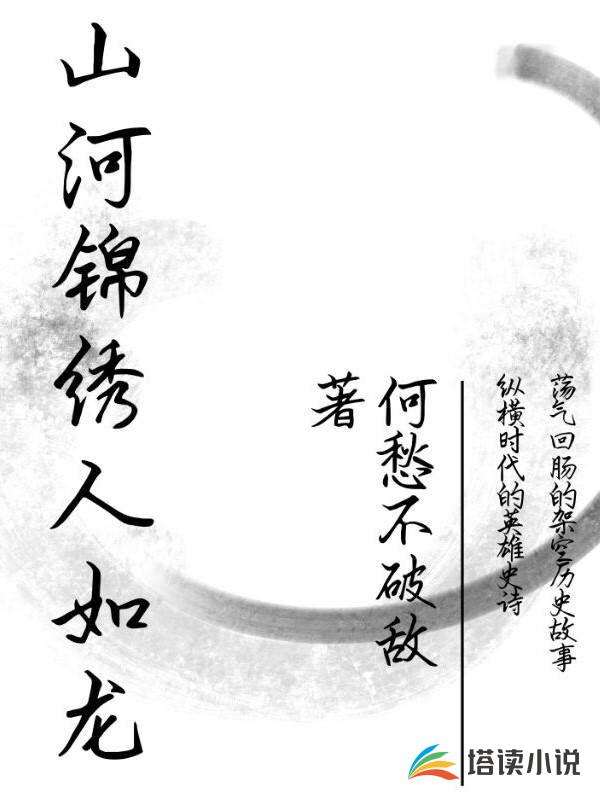 山河锦绣人如龙
何愁不破敌
著
荡气回肠的架空历史故事
纵横时代的英雄史诗
塔读小说